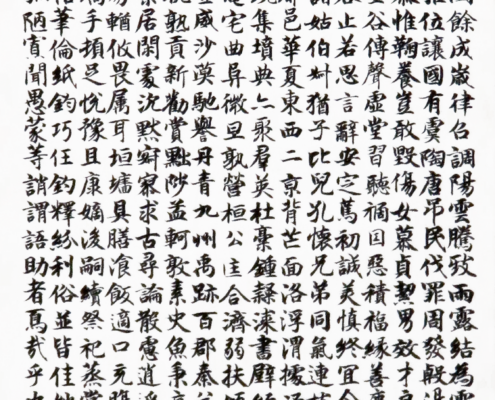 餘成歲律呂調陽雲騰致雨露結為
位讓國有虞陶唐吊民伐罪周發殷湯
惟鞠養豈敢毀傷女慕貞絜男效才良
谷傳聲虛堂習聽禍因惡積福緣善慶
止若思言辭安定篤初誠美慎終宜令
諸姑伯叔猶子比兒孔懷兄弟同氣連枝
邑華夏東西二京背芒面洛浮渭據涇
集墳典亦聚群英杜稾鍾隸漆書壁經
宅曲阜微旦孰營桓公匡合濟弱扶傾
威沙漠馳譽丹青九州禹跡百郡秦并
熟貢新勸賞黜陟孟軻敦素史魚秉直
居閑處沉默寂寥求古尋論散慮逍遙
易輶攸畏屬耳垣墻具膳飡飯適口充腸
手頓足悅豫且康嫡後嗣續祭祀蒸嘗
筆倫紙鈞巧任釣釋紛利俗並皆佳妙
陋寡聞愚蒙等誚謂語助者焉哉乎也